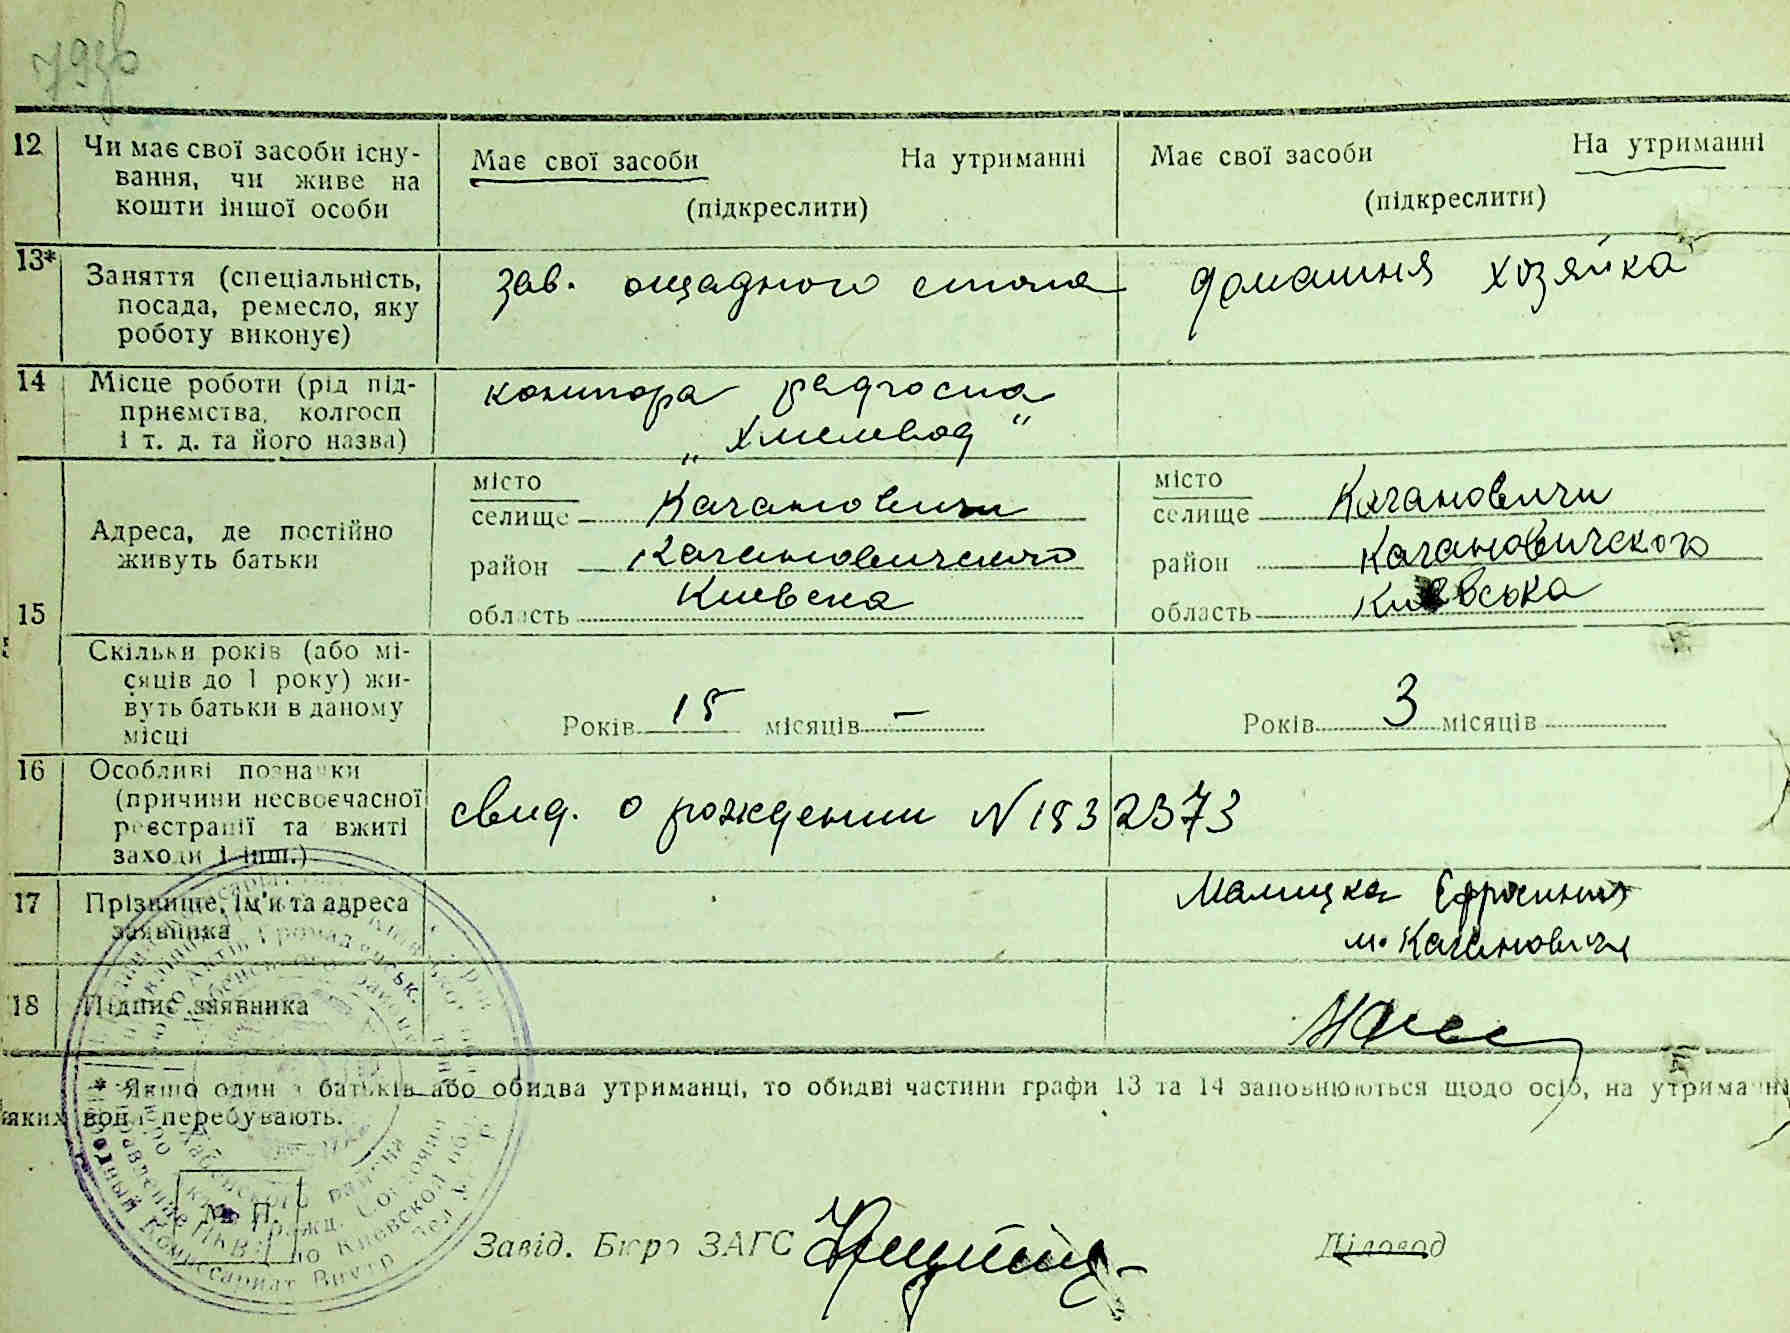 793в
12 Чи має свої засоби існу-
вання, чи живе на
кошти іншої особи
Має свої засоби На утриманні
(підкреслити)
Має свої засоби На утриманні
(підкреслити)
13* Заняття (спеціальність,
посада, ремесло, яку
роботу виконує)
зав. ощадного стола
домашня хозяйка
14 Місце роботи (рід під-
приємства, колгосп
і т. д. та його назва)
контора радгоспа
„Хмелевод"
15 Адреса, де постійно
живуть батьки
місто
селище Кагановичи
район Кагановичского
область Киевска
місто
селище Кагановичи
район Кагановичского
область Киевська
Скільки років (або мі-
сяців до 1 року) жи-
вуть батьки в даному
місці
Років 15 місяців –
Років 3 місяців
16 Особливі позначки
(причини несвоєчасної
реєстрації та вжиті
заходи і інш.)
свид. о рождении N 1932373
17 Прізвище, ім'я та адреса
заявника
Малицка Ефросиния
м. Кагановичи
18 Підпис заявника
* Якщо один з батьків або обидва утриманці, то обидві частини графи 13 та 14 заповнюються щодо осіб, на утриманні
яких вони перебувають.
М. П.
Завід. Бюро ЗАГС
Діловод